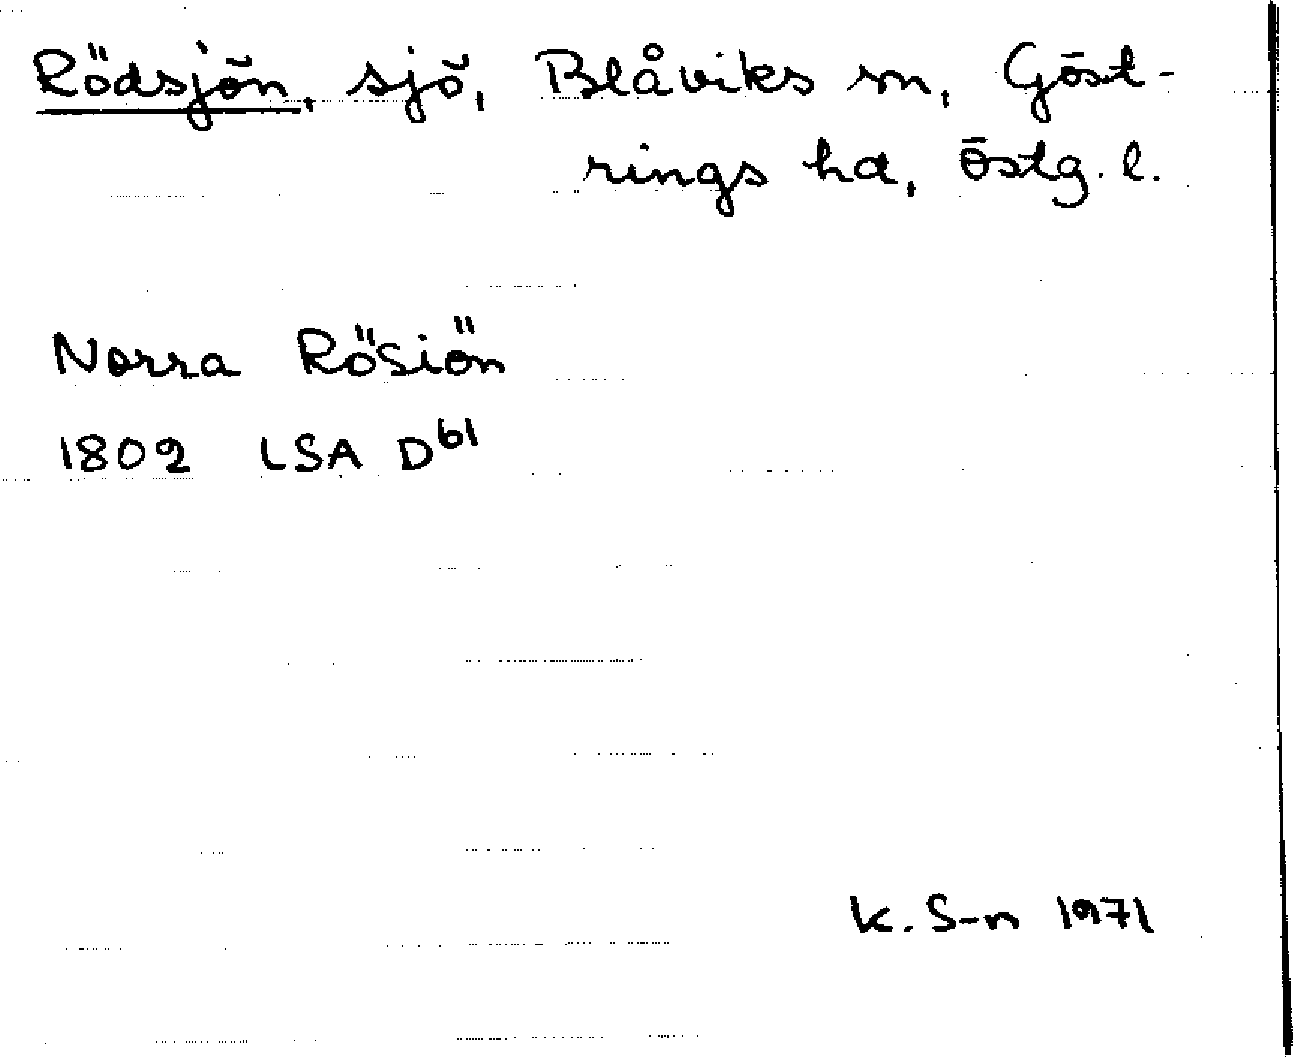 Rödsjön, sjö, Blåviks sn, Göst-
rings hd, Östg. l.
Norra Rösiön
1802 LSA D61
K. S-n 1971